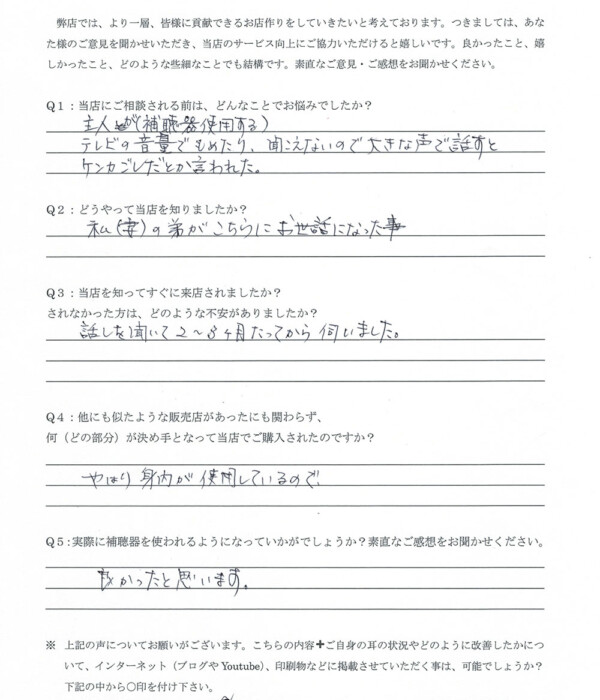 弊店では、より一層、皆様に貢献できるお店作りをしていきたいと考えております。つきましては、あな
た様のご意見を聞かせいただき、当店のサービス向上にご協力いただけると嬉しいです。良かったこと、嬉
しかったこと、どのような些細なことでも結構です。素直なご意見・ご感想をお聞かせください。
Q1：当店にご相談される前は、どんなことでお悩みでしたか？
主人が(補聴器使用する)
テレビの音量でもめたり、聞こえないので大きな声で話すと
ケンカゴシだとか言われた。
Q2：どうやって当店を知りましたか？
私(妻)の弟がこちらにお世話になった事
Q3：当店を知ってすぐに来店されましたか？
されなかった方は、どのような不安がありましたか？
話しを聞いて2～3ヶ月たってから伺いました。
Q4：他にも似たような販売店があったにも関わらず、
何（どの部分）が決め手となって当店でご購入されたのですか？
やはり身内が使用しているので
Q5：実際に補聴器を使われるようになっていかがでしょうか？素直なご感想をお聞かせください。
良かったと思います。
※ 上記の声についてお願いがございます。こちらの内容＋ご自身の耳の状況やどのように改善したかにつ
いて、インターネット（ブログやYoutube）、印刷物などに掲載させていただく事は、可能でしょうか？
下記の中から〇印を付け下さい。